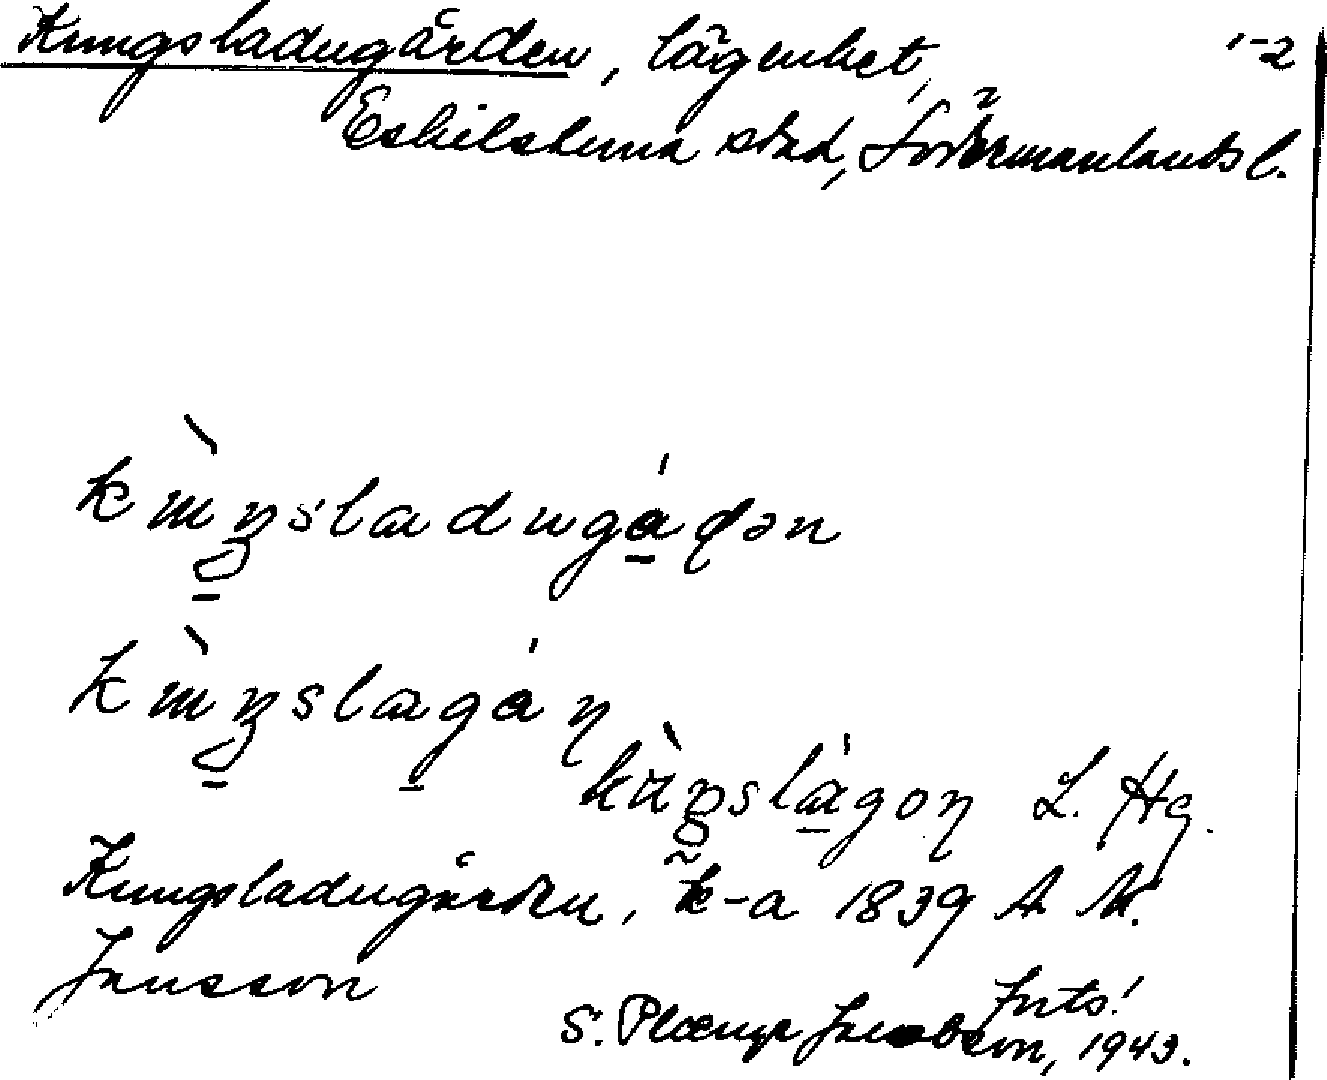 Kungsladugården, lägenhet, 1-2
Eskilstuna stad, Södermanlands l.
kùŋsladugá̱ḍən
kùŋslagáṇ
kùŋslàgoṇ L. Hg.
Kungsladugården, k-a 1839 A M.
Jansson
Forts!
S. Jacobson, 1943.